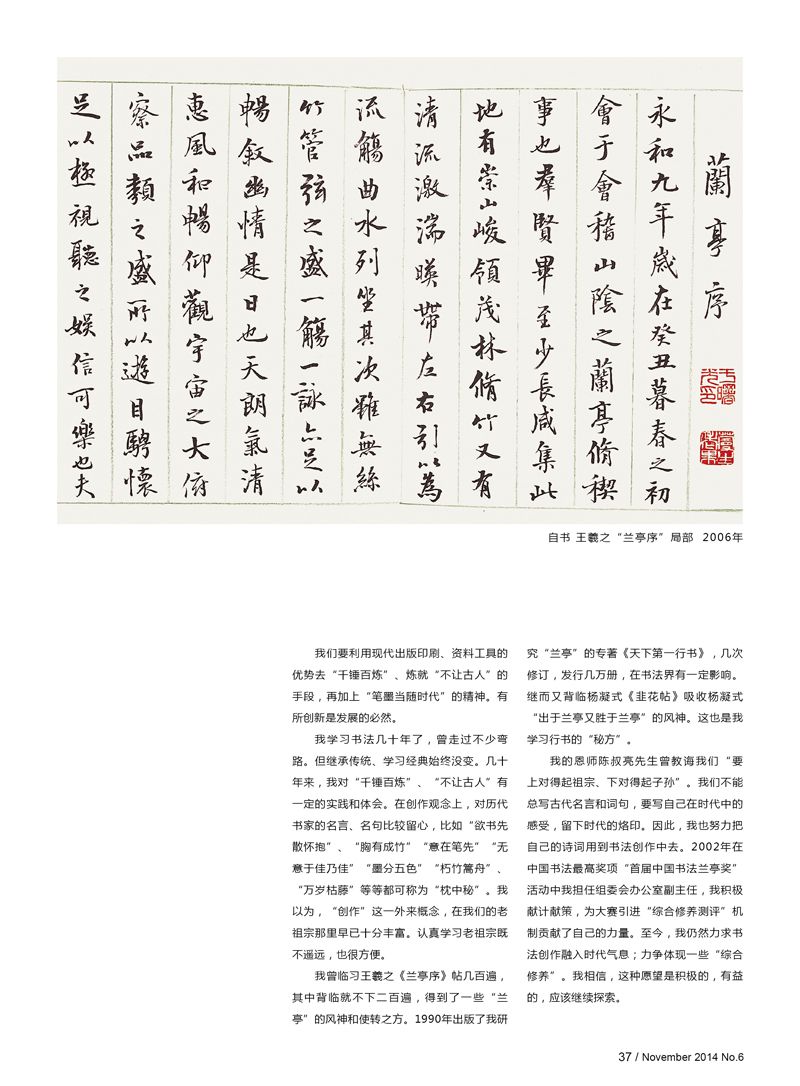 蘭亭序
永和九年歲在癸丑暮春之初
會于會稽山陰之蘭亭脩禊
事也羣賢畢至少長咸集此
地有崇山峻領茂林脩竹又有
清流激湍暎帶左右引以為
流觴曲水列坐其次雖無絲
竹管弦之盛一觴一詠亦足以
暢敘幽情是日也天朗氣清
惠風和暢仰觀宇宙之大俯
察品類之盛所以遊目騁懷
足以極視聽之娛信可樂也夫
自书 王羲之“兰亭序”局部 2006年
我们要利用现代出版印刷、资料工具的
优势去“千锤百炼”、炼就“不让古人”的
手段，再加上“笔墨当随时代”的精神。有
所创新是发展的必然。
我学习书法几十年了，曾走过不少弯
路。但继承传统、学习经典始终没变。几十
年来，我对“千锤百炼”、“不让古人”有
一定的实践和体会。在创作观念上，对历代
书家的名言、名句比较留心，比如“欲书先
散怀抱”、“胸有成竹”“意在笔先”“无
意于佳乃佳”“墨分五色”“朽竹篙舟”、
“万岁枯藤”等等都可称为“枕中秘”。我
以为，“创作”这一外来概念，在我们的老
祖宗那里早已十分丰富。认真学习老祖宗既
不遥远，也很方便。
我曾临习王羲之《兰亭序》帖几百遍，
其中背临就不下二百遍，得到了一些“兰
亭”的风神和使转之方。1990年出版了我研
究“兰亭”的专著《天下第一行书》，几次
修订，发行几万册，在书法界有一定影响。
继而又背临杨凝式《韭花帖》吸收杨凝式
“出于兰亭又胜于兰亭”的风神。这也是我
学习行书的“秘方”。
我的恩师陈叔亮先生曾教诲我们“要
上对得起祖宗、下对得起子孙”。我们不能
总写古代名言和词句，要写自己在时代中的
感受，留下时代的烙印。因此，我也努力把
自己的诗词用到书法创作中去。2002年在
中国书法最高奖项“首届中国书法兰亭奖”
活动中我担任组委会办公室副主任，我积极
献计献策，为大赛引进“综合修养测评”机
制贡献了自己的力量。至今，我仍然力求书
法创作融入时代气息；力争体现一些“综合
修养”。我相信，这种愿望是积极的，有益
的，应该继续探索。
37 / November 2014 No.6